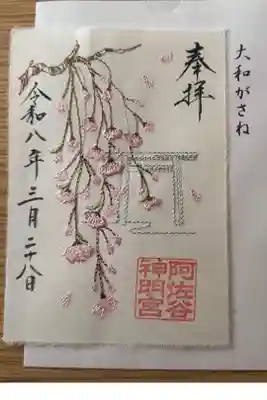 大和がさね
奉拝
阿佐谷
神明宮
令和八年三月二十八日